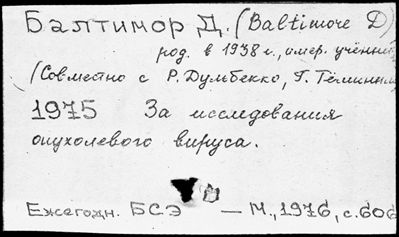 Балтимор Д. (Baltimore D)
род. в 1938 г., амер. учёный
(Совместно с Р. Дульбекко, Г. Тёминым
1975 За исследования
опухолевого вируса.
Ежегодн. БСЭ — М., 1976, с. 606